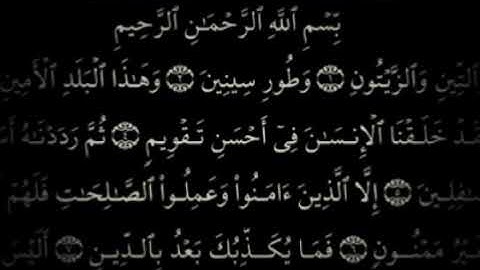 بِسْمِ ٱللَّهِ ٱلرَّحْمَٰنِ ٱلرَّحِيمِ
ٱلتِّينِ وَٱلزَّيْتُونِ ۝١ وَطُورِ سِينِينَ ۝٢ وَهَٰذَا ٱلْبَلَدِ ٱلْأَمِينِ
قَدْ خَلَقْنَا ٱلْإِنسَٰنَ فِىٓ أَحْسَنِ تَقْوِيمٍ ۝٤ ثُمَّ رَدَدْنَٰهُ
سَٰفِلِينَ ۝٥ إِلَّا ٱلَّذِينَ ءَامَنُوا۟ وَعَمِلُوا۟ ٱلصَّٰلِحَٰتِ فَلَهُمْ
يْرُ مَمْنُونٍ ۝٦ فَمَا يُكَذِّبُكَ بَعْدُ بِٱلدِّينِ ۝٧ أَلَيْسَ